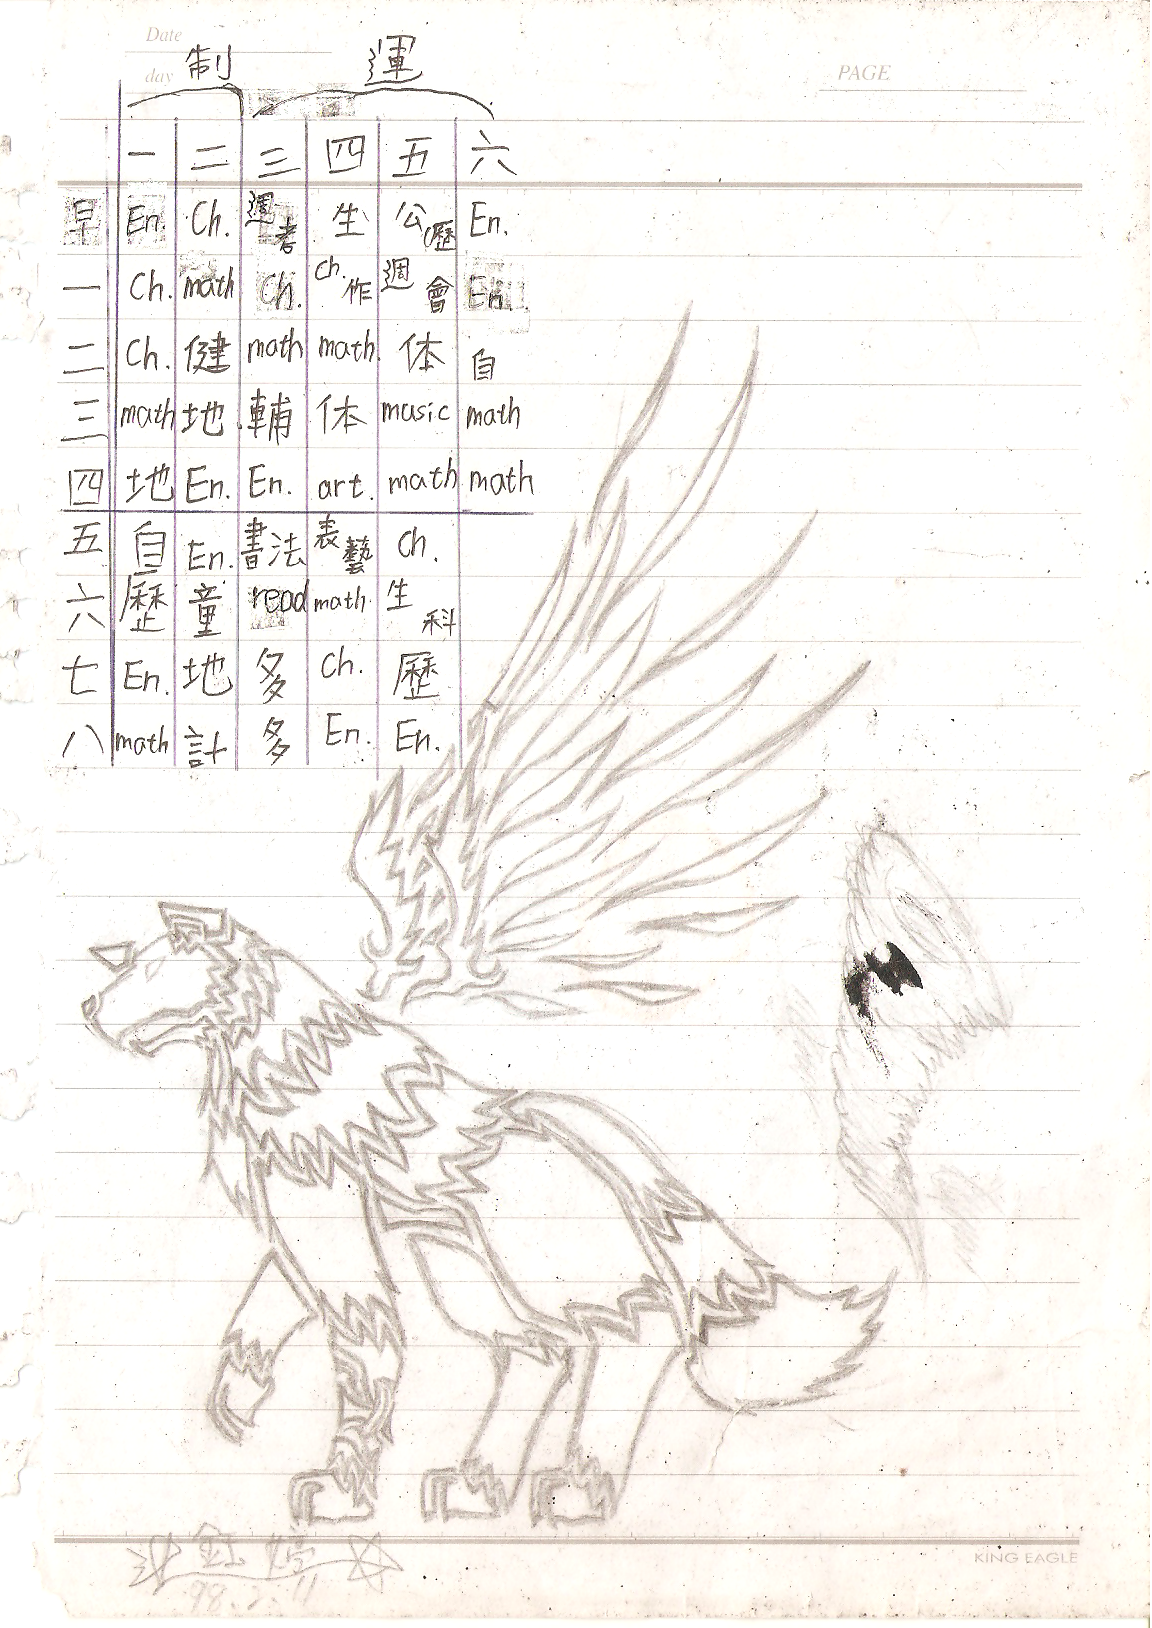 Date
day
PAGE
制 運
一 二 三 四 五 六
早 En. Ch. 週考 生 公(歷 En.
一 Ch. math Ch. Ch.作 週會 En.
二 Ch. 健 math math. 体 自
三 math 地 輔 体 music math
四 地 En. En. art. math math
五 自 En. 書法 表藝 Ch.
六 歷 童 read math. 生科
七 En. 地 多 Ch. 歷
八 math 計 多 En. En.
KING EAGLE